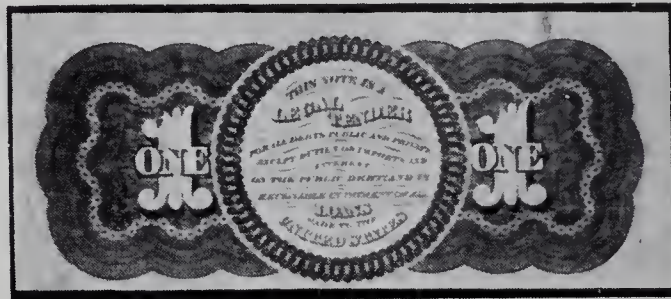 THIS NOTE IS A
LEGAL
TENDER
FOR ALL DEBTS PUBLIC AND PRIVATE
EXCEPT DUTIES ON IMPORTS AND
INTEREST
ON THE PUBLIC DEBT, AND IS
RECEIVABLE IN PAYMENT OF ALL
LOANS
MADE TO THE
UNITED STATES
1 ONE
1 ONE